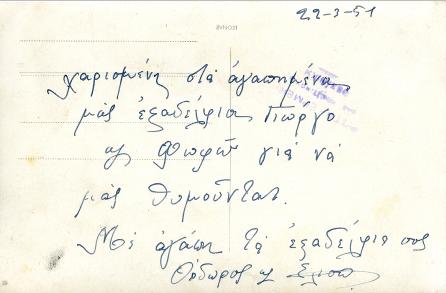 22-3-51
χαρισμένη στά ἀγαπημένα
μας ἐξαδέλφια Γιώργο
γιά νά
μᾶς θυμοῦνται.
Μέ ἀγάπη τά ἐξαδέλφια σας
Θόδωρος